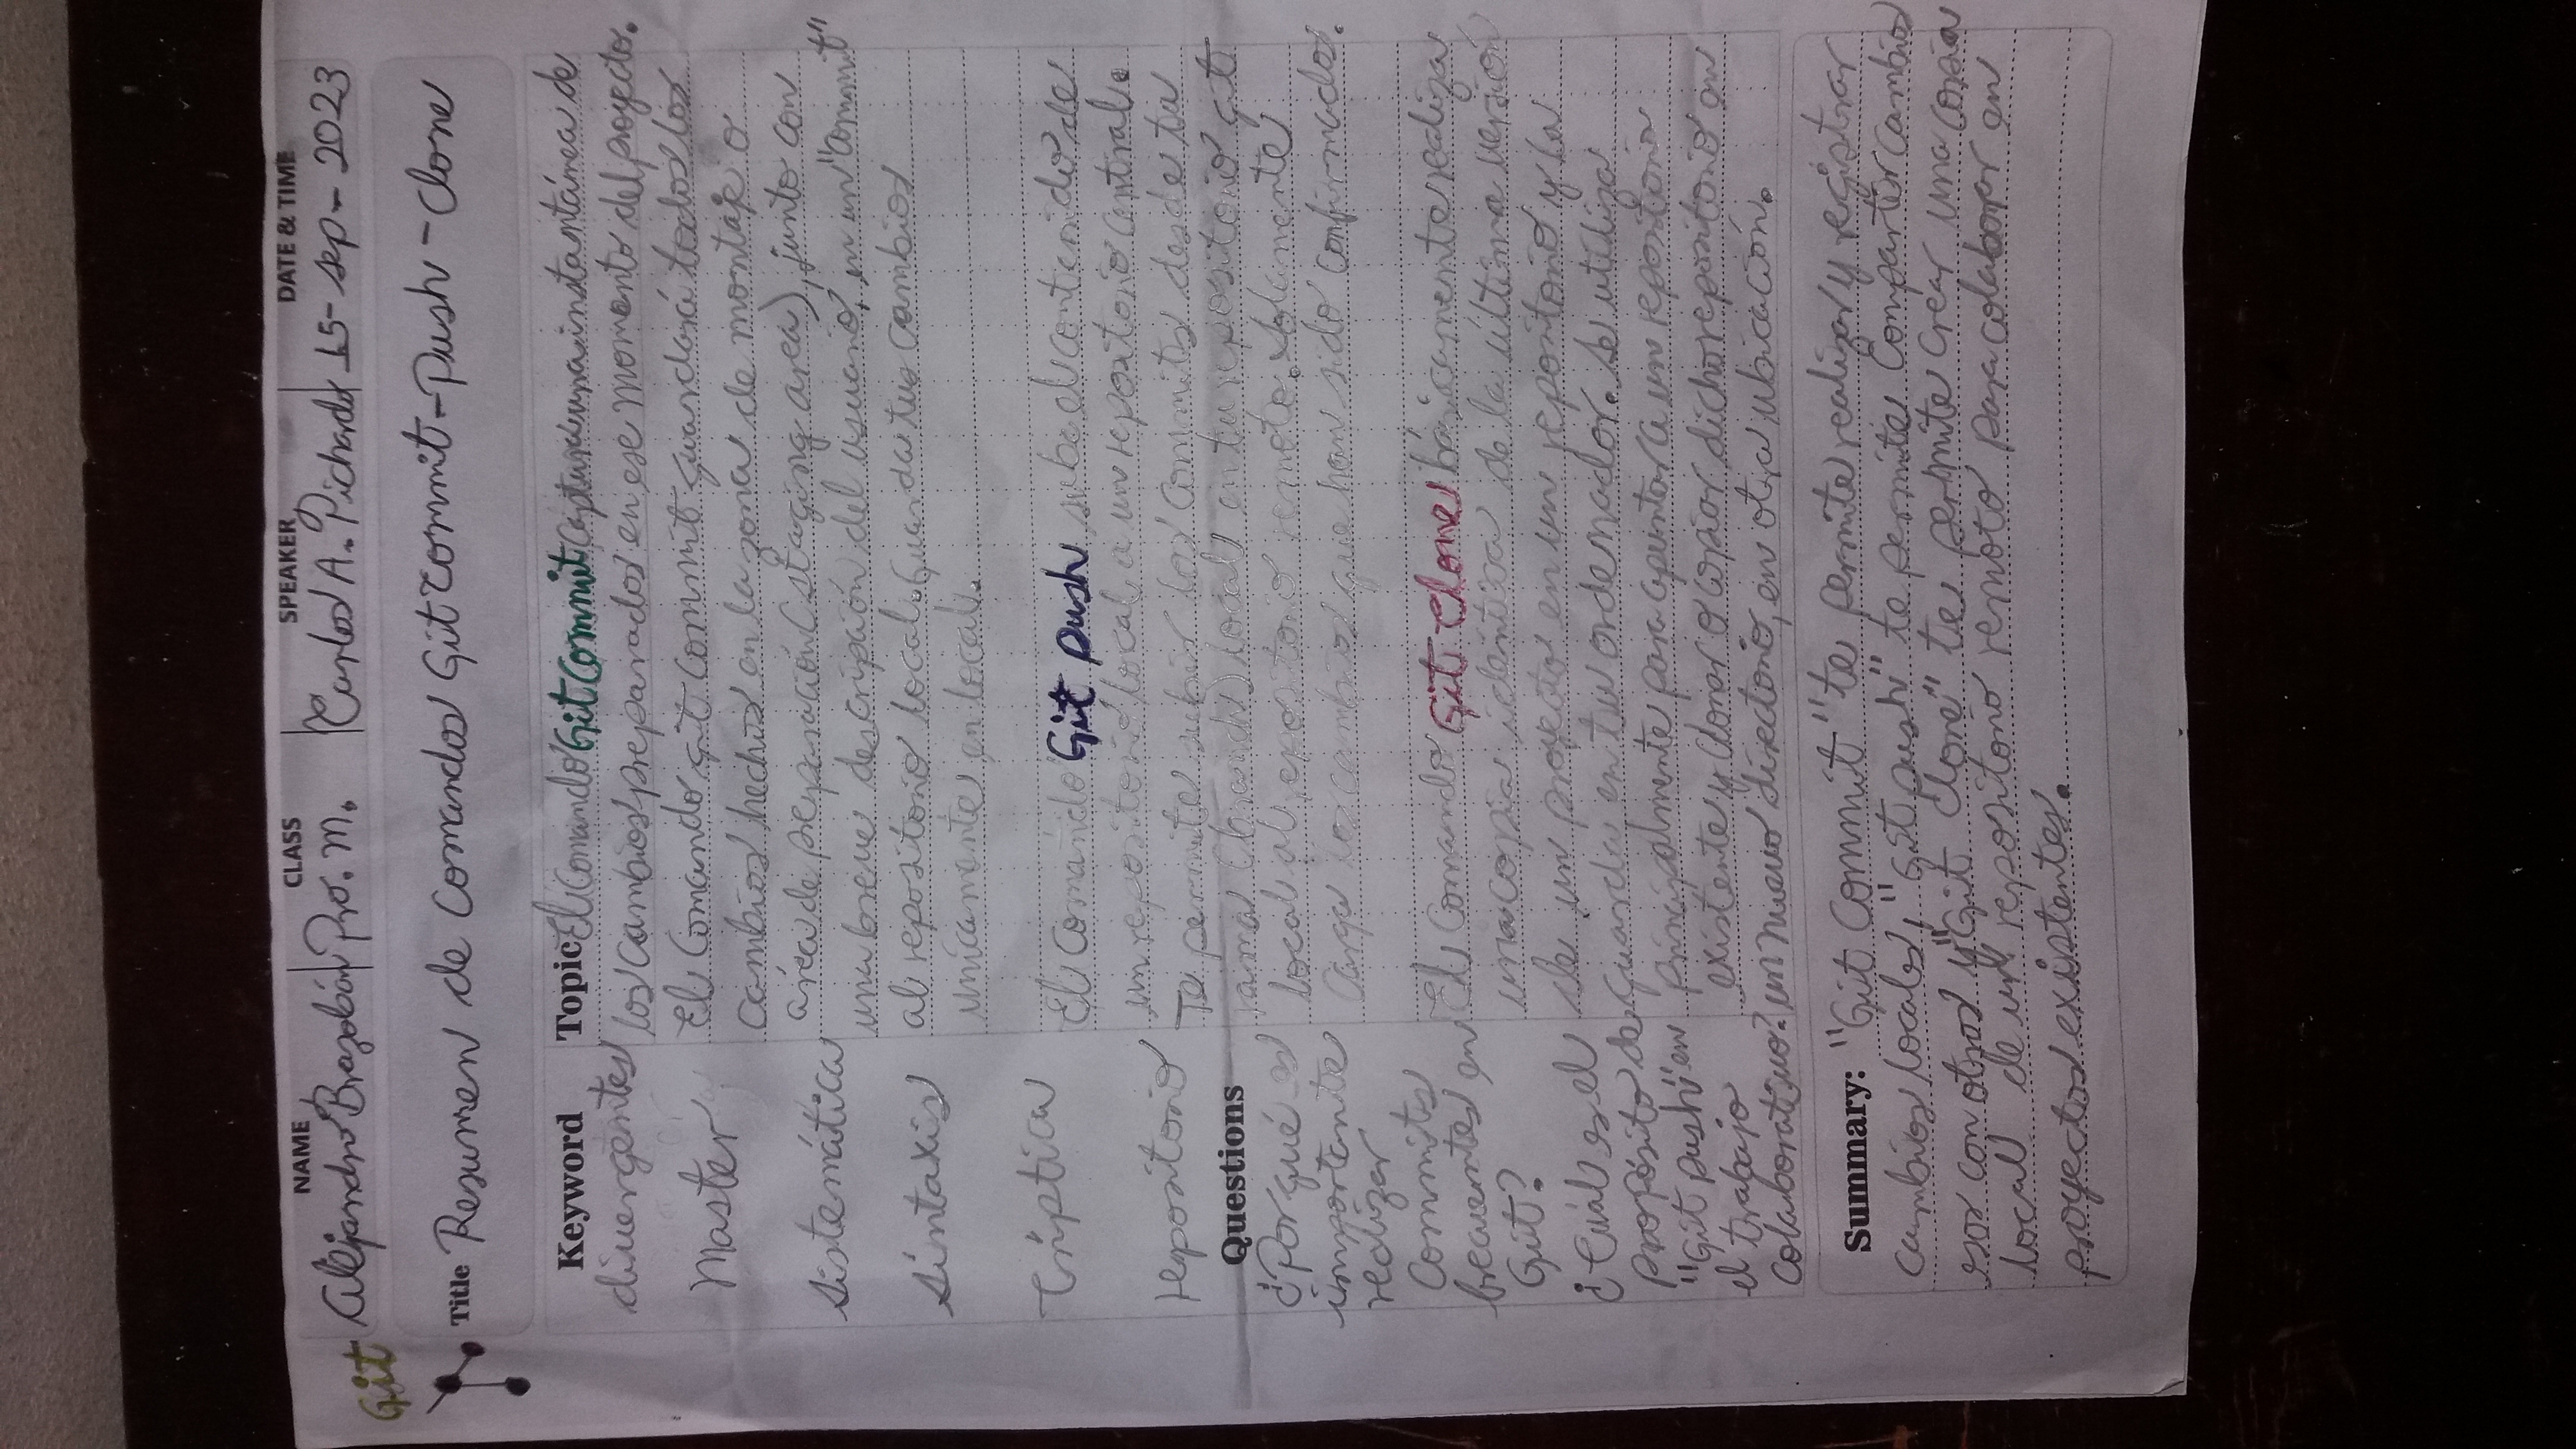 NAME CLASS SPEAKER DATE & TIME
Alejandro Brazobán Pro. M. Carlos A. Pichardo 15-sep-2023
Git
Title Resumen de Comandos Git Commit-Push-Clone
Keyword
divergentes
Master
Sistemática
Síntaxis
Críptica
repositorio
Questions
¿Por qué es
importante
realizar
Commits
frecuentes en
Git?
¿Cuál es el
propósito de
"Git push" en
el trabajo
colaborativo?
Topic El Comando Git Commit Captura una instantánea de
los cambios preparados en ese momento del proyecto.
El Comando git commit guardará todos los
cambios hechos en la zona de montaje o
área de preparación (staging area), junto con
una breve descripción del usuario, en un "commit"
al repositorio local. Guarda tus cambios
unicamente en local.
El Comando Git push sube el contenido de
un repositorio local a un repositorio central.
Te permite subir los Commits desde tu
rama (branch) local en tu repositorio git
local al repositorio remoto. Solamente
carga los cambios que han sido confirmados.
El Comando Git Clone básicamente realiza
una copia idéntica de la última versión
de un proyecto en un repositorio y la
guarda en tu ordenador. Se utiliza
principalmente para apuntar a un repositorio
existente y clonar o copiar dicho repositorio en
un nuevo directorio, en otra ubicación.
Summary: "Git Commit" te permite realizar y registrar
cambios locales, "Git push" te permite Compartir cambios
esos con otros y "Git Clone" te permite crear una copia
local de un repositorio remoto para colaborar en
proyectos existentes.